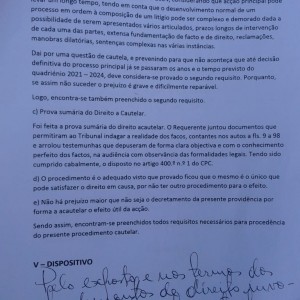 levar um longo tempo, tendo em conta que o desenvolvimento normal de um
processo em ordem à composição de um litígio pode ser complexo e demorado dada a
possibilidade de serem apresentados vários articulados, prazos longos de intervenção
de cada uma das partes, extensa fundamentação de facto e de direito, reclamações,
manobras dilatórias, sentenças complexas nas várias instâncias.
Daí por uma questão de cautela, e prevenindo para que não aconteça que até decisão
definitiva do processo principal já se passaram os anos e o tempo previsto do
quadriénio 2021 – 2024, deve considera-se provado o segundo requisito. Porquanto,
se assim não suceder o prejuízo é grave e dificilmente reparável.
Logo, encontra-se também preenchido o segundo requisito.
c) Prova sumária do Direito a Cautelar.
Foi feita a prova sumária do direito acautelar. O Requerente juntou documentos que
permitiram ao Tribunal indagar a realidade dos facos, contantes nos autos a fls. 9 a 98
e arrolou testemunhas que depuseram de forma clara objectiva e com o conhecimento
perfeito dos factos, na audiência com observância das formalidades legais. Tendo sido
cumprido cabalmente, o disposto no artigo 400.º n.º 1 do CPC.
d) O procedimento é o adequado visto que provado ficou que mesmo é o único que
pode satisfazer o direito em causa, por não ter outro procedimento para o efeito.
e) Não há prejuízo maior que não seja o decretamento da presente providência por
forma a acautelar o efeito útil da acção.
Sendo assim, encontram-se preenchidos todos requisitos necessários para procedência
do presente procedimento cautelar.
V – DISPOSITIVO
Pelo exposto e nos termos dos
do direito